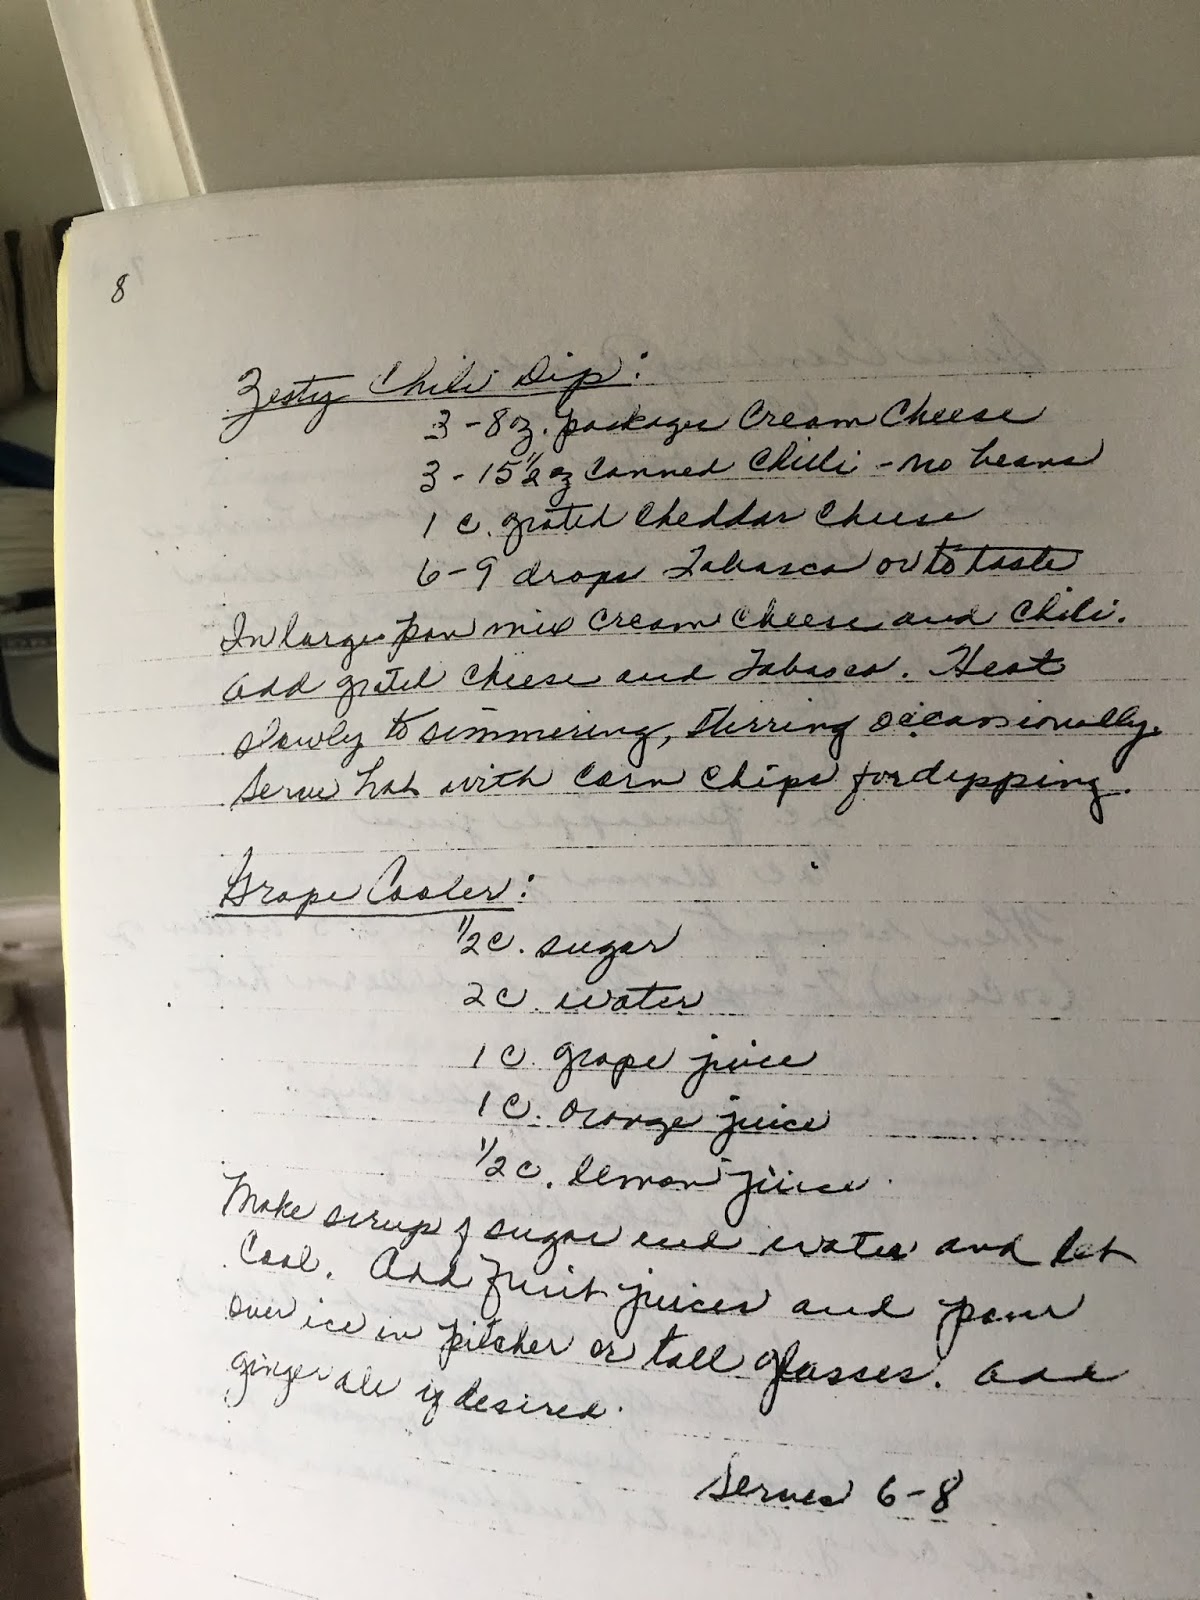 8
Zesty Chili Dip:
3 - 8 oz. packages Cream Cheese
3 - 15 1/2 oz Canned Chili - no beans
1 c. grated Cheddar Cheese
6-9 drops Tabasco or to taste
In large pan mix Cream Cheese and Chili.
Add grated cheese and Tabasco. Heat
slowly to simmering, stirring occasionally.
Serve hot with Corn Chips for dipping.
Grape Cooler:
1/2 c. sugar
2 c. water
1 c. grape juice
1 c. orange juice
1/2 c. lemon juice
Make sirup of sugar and water and let
Cool. Add fruit juices and pour
over ice in pitcher or tall glasses. Add
ginger ale if desired.
Serves 6-8